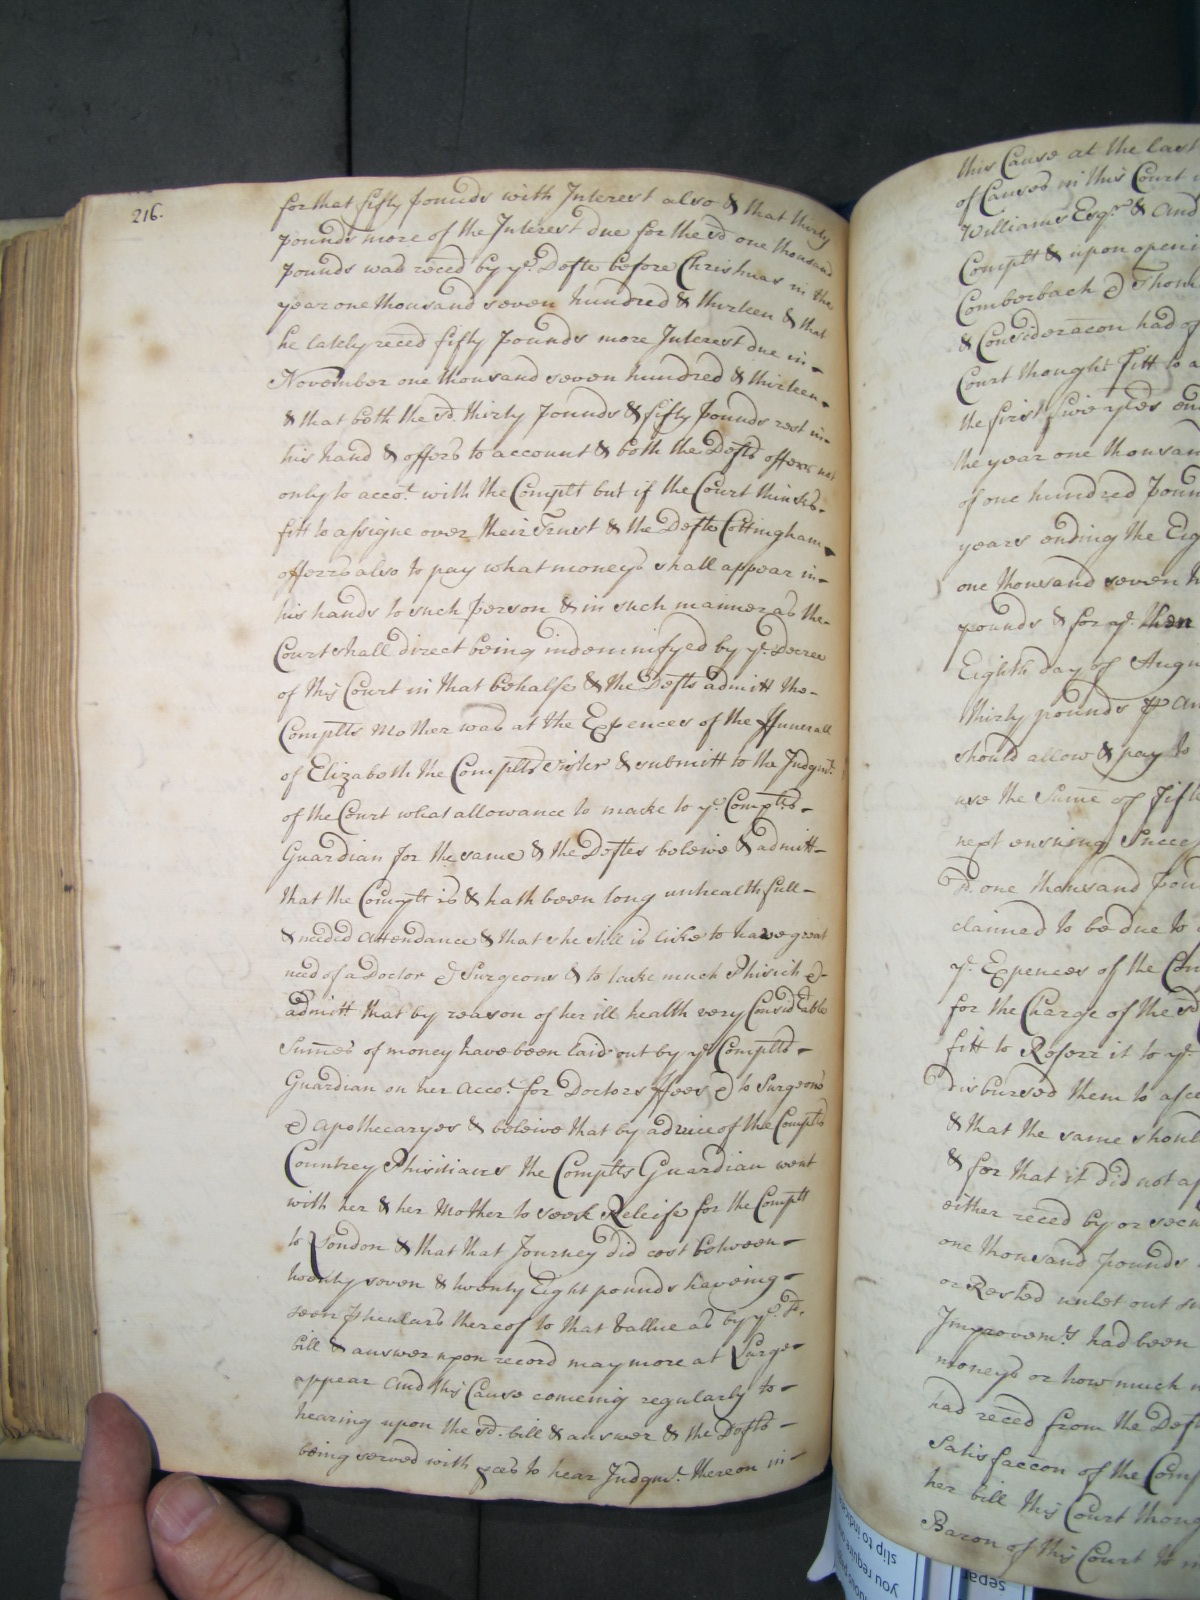 216.
for that fifty pounds with Interest also & that thirty
pounds more of the Interest due for the sd one thousand
pounds was reced by ye. Defte before Christmas in the
year one thousand seven hundred & thirteen & that
he lately reced fifty pounds more Interest due in
November one thousand seven hundred & thirteen
& that both the sd. thirty pounds & fifty pounds rest in
his hand & offers to account & both the Defts offers not
only to accot. with the Complt but if the Court thinks
fitt to assigne over their Trust & the Defte Cottingham
offers also to pay what moneys shall appear in
his hands to such person & in such manner as the
Court shall direct being indemnifyed by ye. Decree
of this Court in that behalfe & the Defts admitt the
Complts Mother was at the Expences of the ffunerall
of Elizabeth the Complts sister & submitt to the Judgmt.
of the Court what allowance to make to ye. Complts
Guardian for the same & the Deftes beleive & admitt
that the Complt is & hath been long unhealthfull
& needed Attendance & that she still is like to have great
need of a Doctor & Surgeons & to take much Phisick &
admitt that by reason of her ill health very Considerable
Summes of money have been laid out by ye Complts
Guardian on her Accot. for Doctors ffees & to Surgeons
& Apothecaryes & beleive that by advice of the Complts
Countrey Phisitians the Complts Guardian went
with her & her Mother to seek Releife for the Complt
to London & that that Journey did cost between
twenty seven & twenty Eight pounds haveing
seen thereof to that vallue as by ye. sd.
bill & answer upon record may more at Large
appear And this Cause comeing regularly to
hearing upon the sd. bill & answer & the Defts
being served with to hear Judgmt. thereon in
this Cause at the last
of Causes in this Court
Williams Esqr. & And
Complt & upon openi
Comberbach & Thom
& Consideracon had of
Court thought fitt to a
the first five
the year one thousan
of one hundred poun
years ending the Eig
one thousand seven h
pounds & for ye. then
Eighth day of Augu
thirty pounds
should allow & pay to
use the Sume of fift
next ensuing
sd. one thousand poun
claimed to be due to
ye. Expences of the Com
for the Charge of the sd
fitt to Referr it to ye.
disbursed them to asce
& that the same shoul
& for that it did not ap
either reced by or secu
one thousand pounds
or Rested unlet out
Improvemts had been
moneys or how much
had reced from the Deft
Satisfaccon of the Comp
her bill this Court thoug
Baron of this Court to
slip to indic
you require
sepa